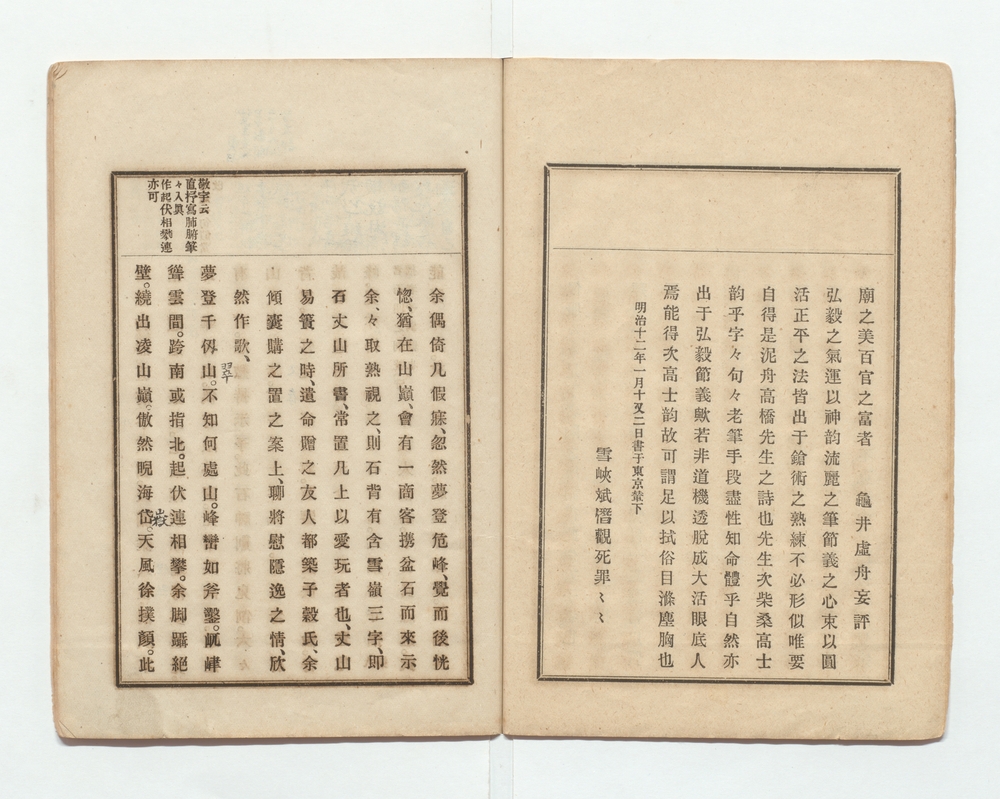 廟之美百官之富者　龜井虛舟妄評
弘毅之氣運以神韵流麗之筆節義之心束以圓
活正平之法皆出于鎗術之熟練不必形似唯要
自得是泥舟高橋先生之詩也先生次柴桑高士
韵乎字々句々老筆手段盡性知命體乎自然亦
出于弘毅節義歟若非道機透脫成大活眼底人
焉能得次高士韵故可謂足以拭俗目滌塵胸也
明治十二年一月十又二日書于東京輦下
雪峽斌僭觀死罪〻〻
敬宇云
直抒寫肺腑筆
々入眞
作起伏相攀連
亦可
余偶倚几假寐、忽然夢登危峰、覺而後恍
惚、猶在山巓、會有一商客携盆石而來示
余、々取熟視之、則石背有含雪嶺三字、即
石丈山所書、常置几上以愛玩者也、丈山
易簀之時、遺命贈之友人都築子穀氏、余
傾囊購之置之案上、聊將慰隱逸之情、欣
然作歌、
夢登千仭山。不知何處山。峰巒如斧鑿。屼嵂
聳雲間。跨南或指北。起伏連相攀。余脚躡絕
壁。繞出凌山巓。傲然睨海岱。天風徐撲顏。此